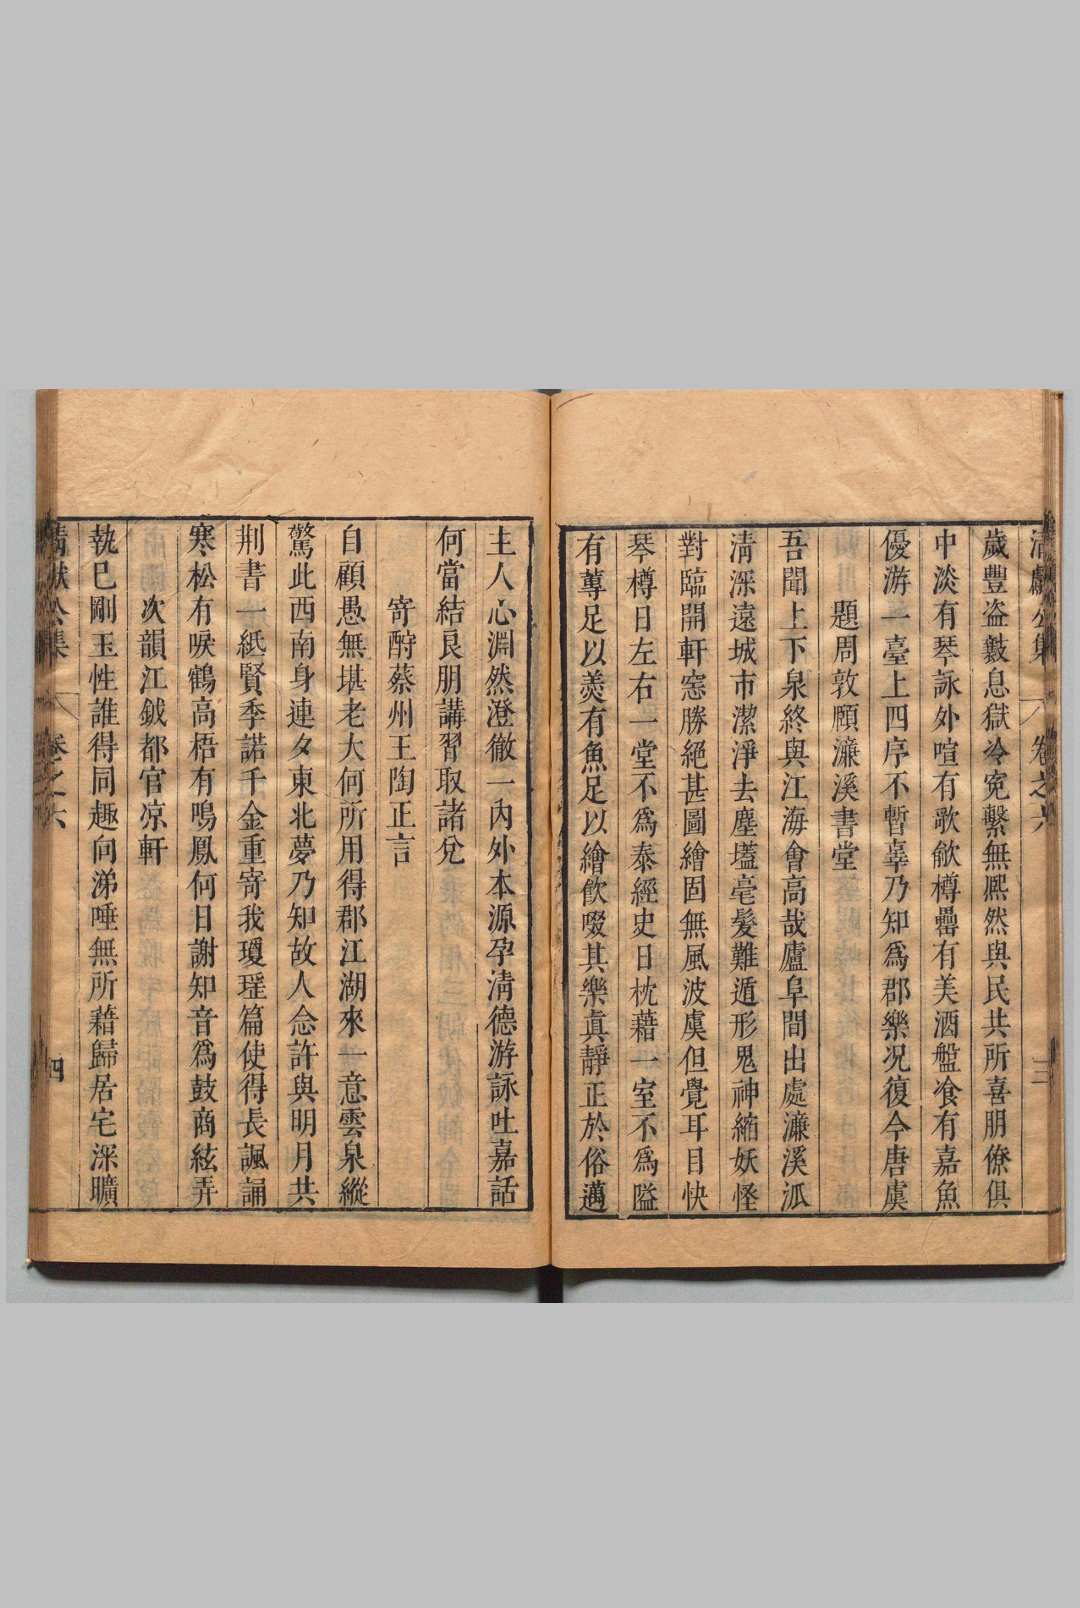 清獻公集 卷之六 三
歲豐盗數息獄冷寃繫無熈然與民共所喜朋僚俱
中淡有琴詠外喧有歌歈樽罍有美酒盤飡有嘉魚
優游一臺上四序不暫辜乃知爲郡樂况復今唐虞
題周敦頤濂溪書堂
吾聞上下泉終與江海會高哉廬阜間出處濂溪派
清深遠城市潔淨去塵壒毫髮難遁形鬼神縮妖怪
對臨開軒窓勝絕甚圖繪固無風波虞但覺耳目快
琴樽日左右一堂不爲泰經史日枕藉一室不爲隘
有蓴足以羙有魚足以繪飮啜其樂真靜正於俗邁
主人心淵然澄徹一內外本源孕清德游詠吐嘉話
何當結良朋講習取諸兌
寄酧蔡州王陶正言
自顧愚無堪老大何所用得郡江湖來一意雲泉縱
驚此西南身連夕東北夢乃知故人念許與明月共
荆書一紙賢季諾千金重寄我瓊瑶篇使得長諷誦
寒松有唳鶴高梧有鳴鳳何日謝知音爲鼓商絃弄
次韻江鉞都官凉軒
執已剛玉性誰得同趣向涕唾無所藉歸居宅深曠
清獻公集 卷之六 四